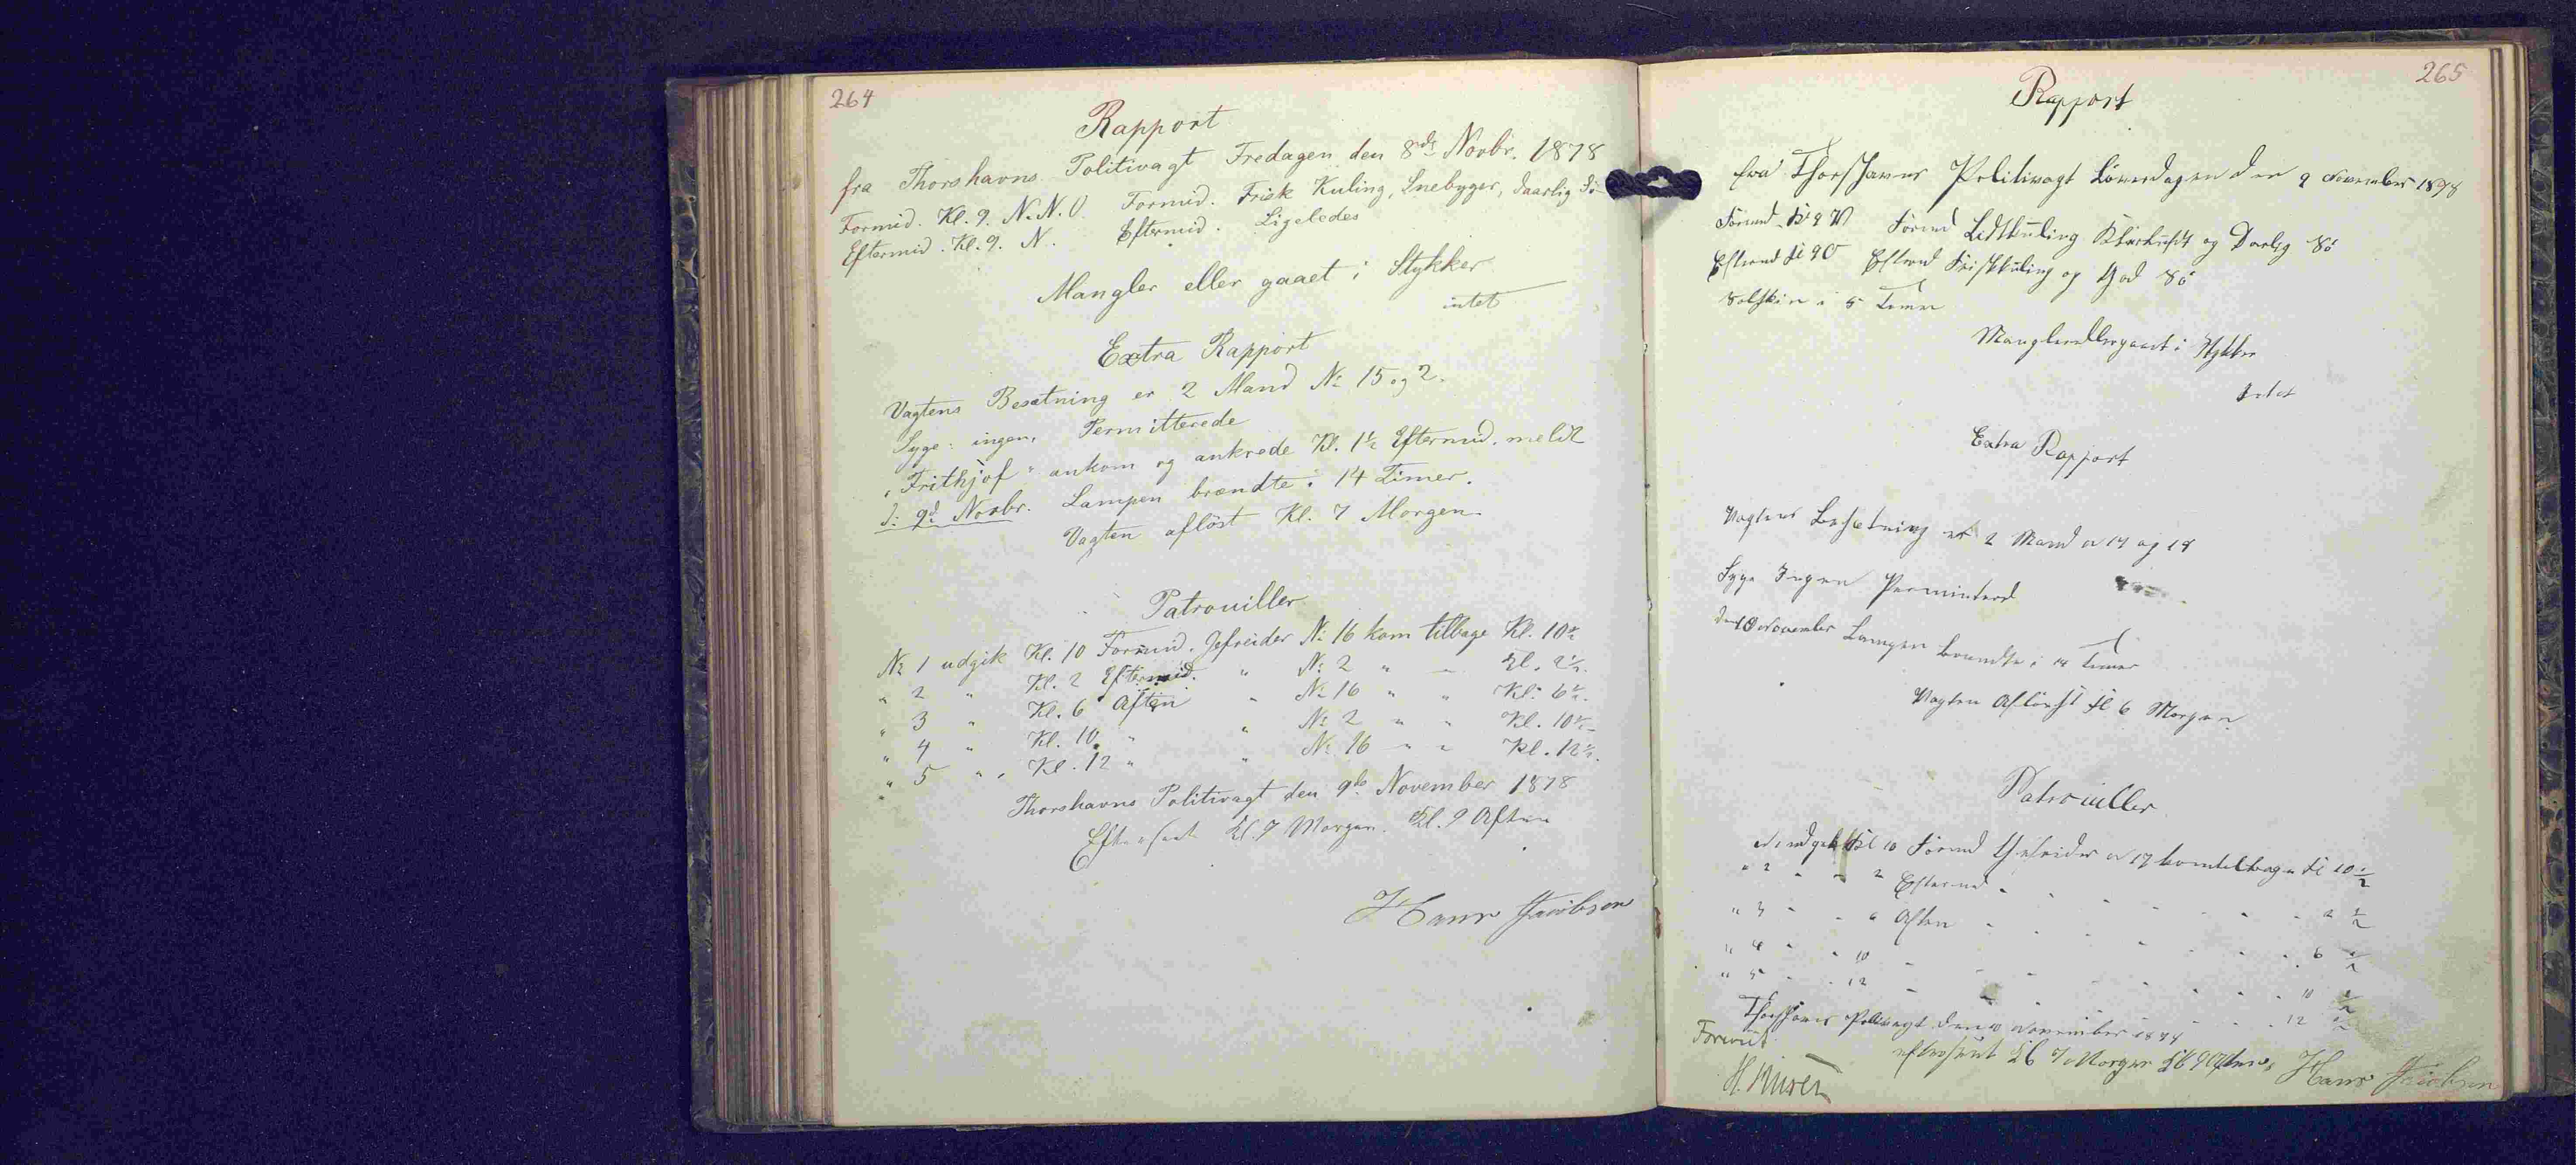 264
Rapport
fra Thorshavns Politivagt Fredagen den 8de Novbr. 1878
Formid. Kl. 9. N.N.O. Formid. Frisk Kuling, Snebyger, daarlig Sö
Eftermid. Kl. 9. N. Eftermid. Ligeledes
Mangler eller gaaet i Stykker
intet
Extra Rapport
Vagtens Besætning er 2 Mand No 15 og 2.
Syge: ingen. Permitterede
"Frithjof" ankom og ankrede Kl. 1½ Eftermid. meldt
d: 9d. Novbr. Lampen brændte i 14 Timer.
Vagten aflöst Kl. 7 Morgen.
Patrouiller
No 1 udgik Kl. 10 Formid. Gefreider No 16 kom tilbage Kl. 10½
" 2 " Kl. 2 Eftermid. " No 2 " " Kl. 2½.
" 3 " Kl. 6 Aften " No 16 " " Kl. 6½.
" 4 " Kl. 10 " " No 2 " " Kl. 10½
" 5 " Kl. 12 " " No 16 " " Kl. 12½.
Thorshavns Politivagt den 9de November 1878
Efterseet Kl. 7 Morgen. Kl. 9 Aften
Hans Jacobsen
265
Rapport
fra Thorshavns Politivagt Löverdagen den 9 November 1878
Formd Kl 9 N Formd Lidtkuling Klarluft og Darlig Sö
Eftermd Kl 9 O Eftermd Friskkuling og God Sö
Solskin i 5 Timer
Mangler ellergaaet i Stykker
Intet
Extra Rapport
Vagtens Besetning er 2 Mand No 17 og 18
Syge Ingen Perminterd
den 10 November Lampen brændte i 14 Timer
Vagten Aflöest Kl 6 Morgen
Patrouiller
No 1 udgik Kl 10 Formd Gefreider No 17 komtilbage Kl 10 ½
" 2 " " 2 Eftermd " " " " " 2 ½
" 3 " " 6 Aften " " " " " 6 ½
" 4 " " 10 " " " " " " 10 ½
" 5 " " 12 " " " " " " 12 ½
Thorshavns Politivagt den 10 November 1878
efterseet Kl 7 Morgen Kl 9 Aften, Hans Jacobsen
Forevist